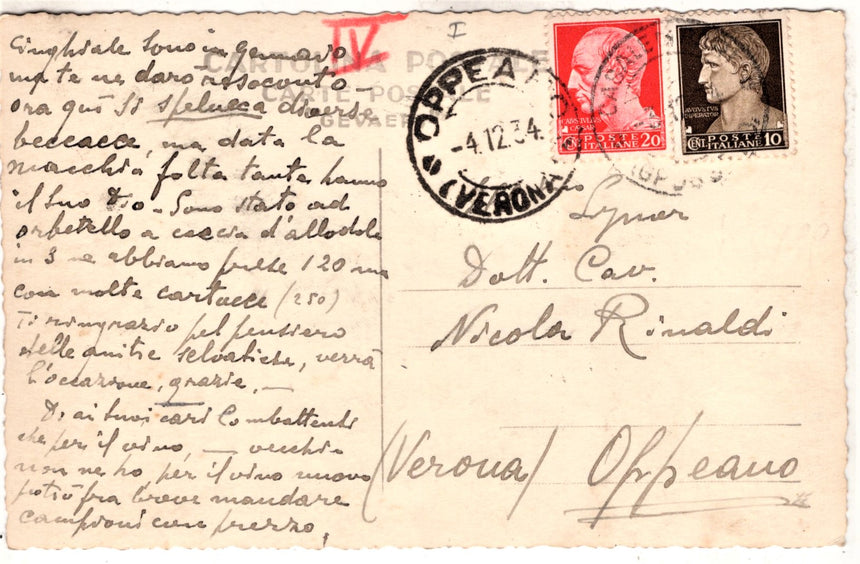 Cinghiale sono in gennaio
ma te ne darò resoconto –
ora qui si spelucca diverse
beccacce, ma, data la
macchia folta tanta hanno
il suo Dio – Sono stato ad
orbetello a caccia d'allodole
in 3 ne abbiamo prese 120 ma
con molte cartucce (250)
Ti ringrazio pel pensiero
delle anitre selvatiche, verrà
l'occazione, grazie, –
Di ai tuoi cari Combattenti
che per il vino, – vecchio
non ne ho per il vino nuovo
potrò fra breve mandare
campioni con prezzo.
IV
I
CARTOLINA POSTALE
CARTE POSTALE
GEVAERT
OPPEANO
-4.12.34.
(VERONA)
CAIVS IVLIVS
POSTE
ITALIANE 20
AVGVSTVS
IMPERATOR
POSTE
CENT. ITALIANE 10
Dott. Cav.
Nicola Rinaldi
(Verona) Oppeano